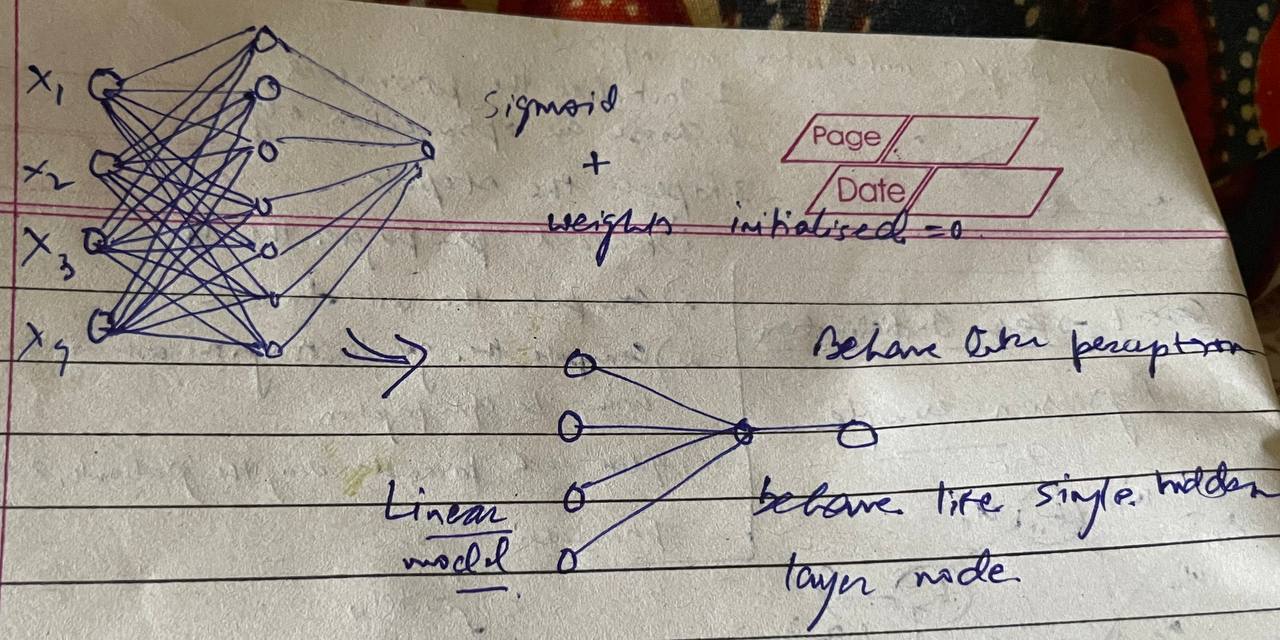 x1
x2
x3
x4
Sigmoid
+
weights initialised = 0
Page
Date
Behave like perceptron
Linear
model
behave like single hidden
layer node.